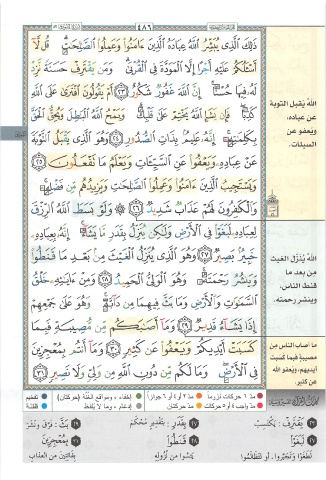 ٤٨٦
ذَٰلِكَ ٱلَّذِى يُبَشِّرُ ٱللَّهُ عِبَادَهُ ٱلَّذِينَ ءَامَنُوا۟ وَعَمِلُوا۟ ٱلصَّٰلِحَٰتِ ۗ قُل لَّآ
أَسْـَٔلُكُمْ عَلَيْهِ أَجْرًا إِلَّا ٱلْمَوَدَّةَ فِى ٱلْقُرْبَىٰ ۗ وَمَن يَقْتَرِفْ حَسَنَةً نَّزِدْ
لَهُۥ فِيهَا حُسْنًا ۚ إِنَّ ٱللَّهَ غَفُورٌ شَكُورٌ ٢٣ أَمْ يَقُولُونَ ٱفْتَرَىٰ عَلَى ٱللَّهِ
كَذِبًا ۖ فَإِن يَشَإِ ٱللَّهُ يَخْتِمْ عَلَىٰ قَلْبِكَ ۗ وَيَمْحُ ٱللَّهُ ٱلْبَٰطِلَ وَيُحِقُّ ٱلْحَقَّ
بِكَلِمَٰتِهِۦٓ ۚ إِنَّهُۥ عَلِيمٌۢ بِذَاتِ ٱلصُّدُورِ ٢٤ وَهُوَ ٱلَّذِى يَقْبَلُ ٱلتَّوْبَةَ
عَنْ عِبَادِهِۦ وَيَعْفُوا۟ عَنِ ٱلسَّيِّـَٔاتِ وَيَعْلَمُ مَا تَفْعَلُونَ ٢٥
وَيَسْتَجِيبُ ٱلَّذِينَ ءَامَنُوا۟ وَعَمِلُوا۟ ٱلصَّٰلِحَٰتِ وَيَزِيدُهُم مِّن فَضْلِهِۦ ۚ
وَٱلْكَٰفِرُونَ لَهُمْ عَذَابٌ شَدِيدٌ ٢٦ ۞ وَلَوْ بَسَطَ ٱللَّهُ ٱلرِّزْقَ
لِعِبَادِهِۦ لَبَغَوْا۟ فِى ٱلْأَرْضِ وَلَٰكِن يُنَزِّلُ بِقَدَرٍ مَّا يَشَآءُ ۚ إِنَّهُۥ بِعِبَادِهِۦ
خَبِيرٌۢ بَصِيرٌ ٢٧ وَهُوَ ٱلَّذِى يُنَزِّلُ ٱلْغَيْثَ مِنۢ بَعْدِ مَا قَنَطُوا۟
وَيَنشُرُ رَحْمَتَهُۥ ۚ وَهُوَ ٱلْوَلِىُّ ٱلْحَمِيدُ ٢٨ وَمِنْ ءَايَٰتِهِۦ خَلْقُ
ٱلسَّمَٰوَٰتِ وَٱلْأَرْضِ وَمَا بَثَّ فِيهِمَا مِن دَآبَّةٍ ۚ وَهُوَ عَلَىٰ جَمْعِهِمْ
إِذَا يَشَآءُ قَدِيرٌ ٢٩ وَمَآ أَصَٰبَكُم مِّن مُّصِيبَةٍ فَبِمَا
كَسَبَتْ أَيْدِيكُمْ وَيَعْفُوا۟ عَن كَثِيرٍ ٣٠ وَمَآ أَنتُم بِمُعْجِزِينَ
فِى ٱلْأَرْضِ ۖ وَمَا لَكُم مِّن دُونِ ٱللَّهِ مِن وَلِىٍّ وَلَا نَصِيرٍ ٣١
الله يُقبل التوبة
عن عباده،
ويعفو عن
السيئات.
الله يُنَزِّل الغيث
من بعد ما
قنط الناس،
وينشر رحمته.
ما أصاب الناس من
مصيبةٍ فبما كسبت
أيديهم، ويعفو الله
عن كثير.
مدّ ٦ حركات لزوماً
مدّ ٢ أو ٤ أو ٦ جوازاً
إخفاء، ومواقع الغُنَّة (حركتان)
تفخيم
مدّ واجب ٤ أو ٥ حركات
مدّ حركتان
إدغام، وما لا يُلفظ
قلقلة
٢٣ يَقْتَرِفْ: يَكْتَسِبْ
٢٧ لَبَغَوْا
٢٧ بِقَدَرٍ: بِتَقْدِيرٍ مُحْكَمٍ
٢٨ قَنَطُوا
يَئِسُوا من نُزولِهِ
٢٩ بَثَّ: فَرَّقَ ونَشَرَ
٣١ بِمُعْجِزِينَ
بِفَائِتِينَ من العذاب